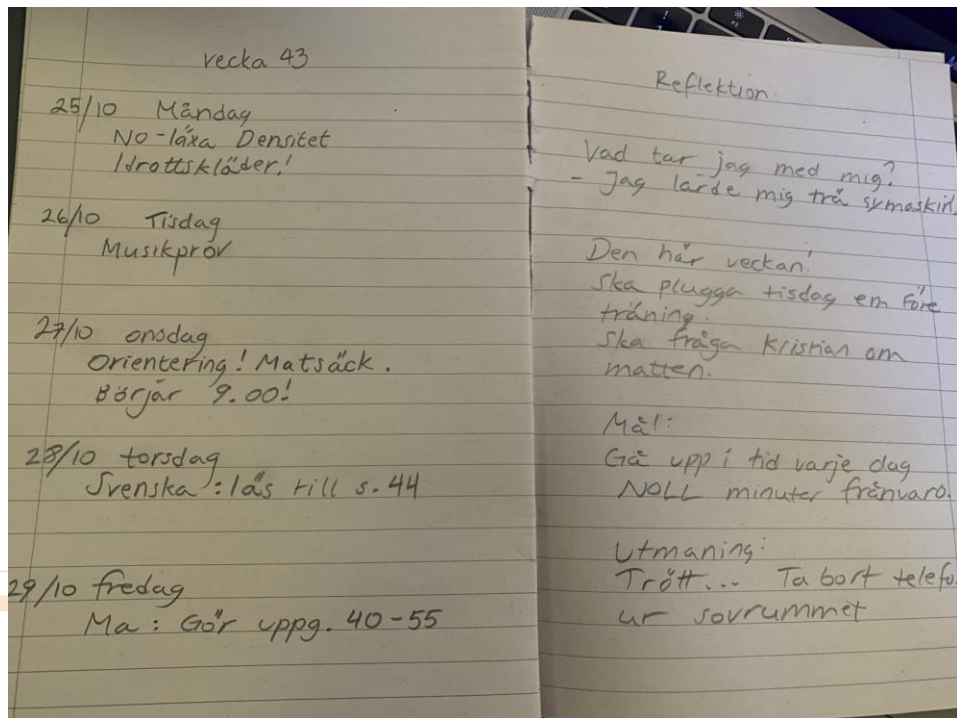 vecka 43
25/10 Måndag
No-läxa Densitet
Idrottskläder!
26/10 Tisdag
Musikprov
27/10 onsdag
Orientering! Matsäck.
Börjar 9.00!
28/10 torsdag
Svenska: läs till s. 44
29/10 fredag
Ma: Gör uppg. 40-55
Reflektion.
Vad tar jag med mig?
- Jag lärde mig trä symaskin.
Den här veckan:
Ska plugga tisdag em före
träning.
Ska fråga Kristian om
matten.
Mål:
Gå upp i tid varje dag
NOLL minuter frånvaro.
Utmaning:
Trött... Ta bort telefo
ur sovrummet